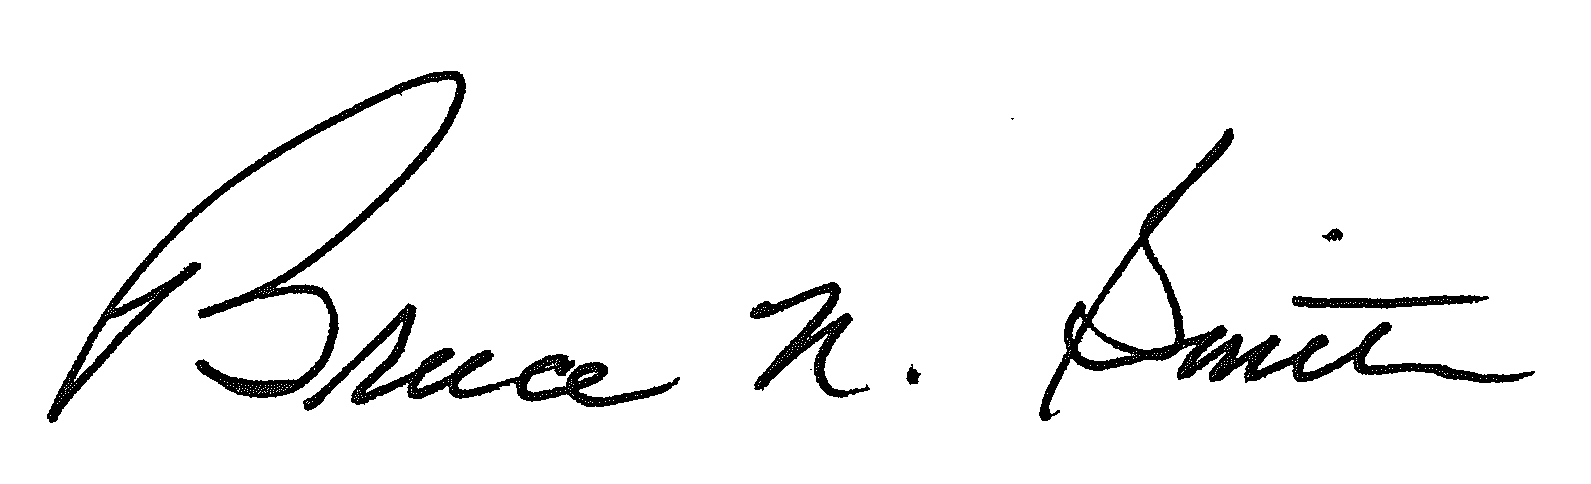 Bruce N. Smith